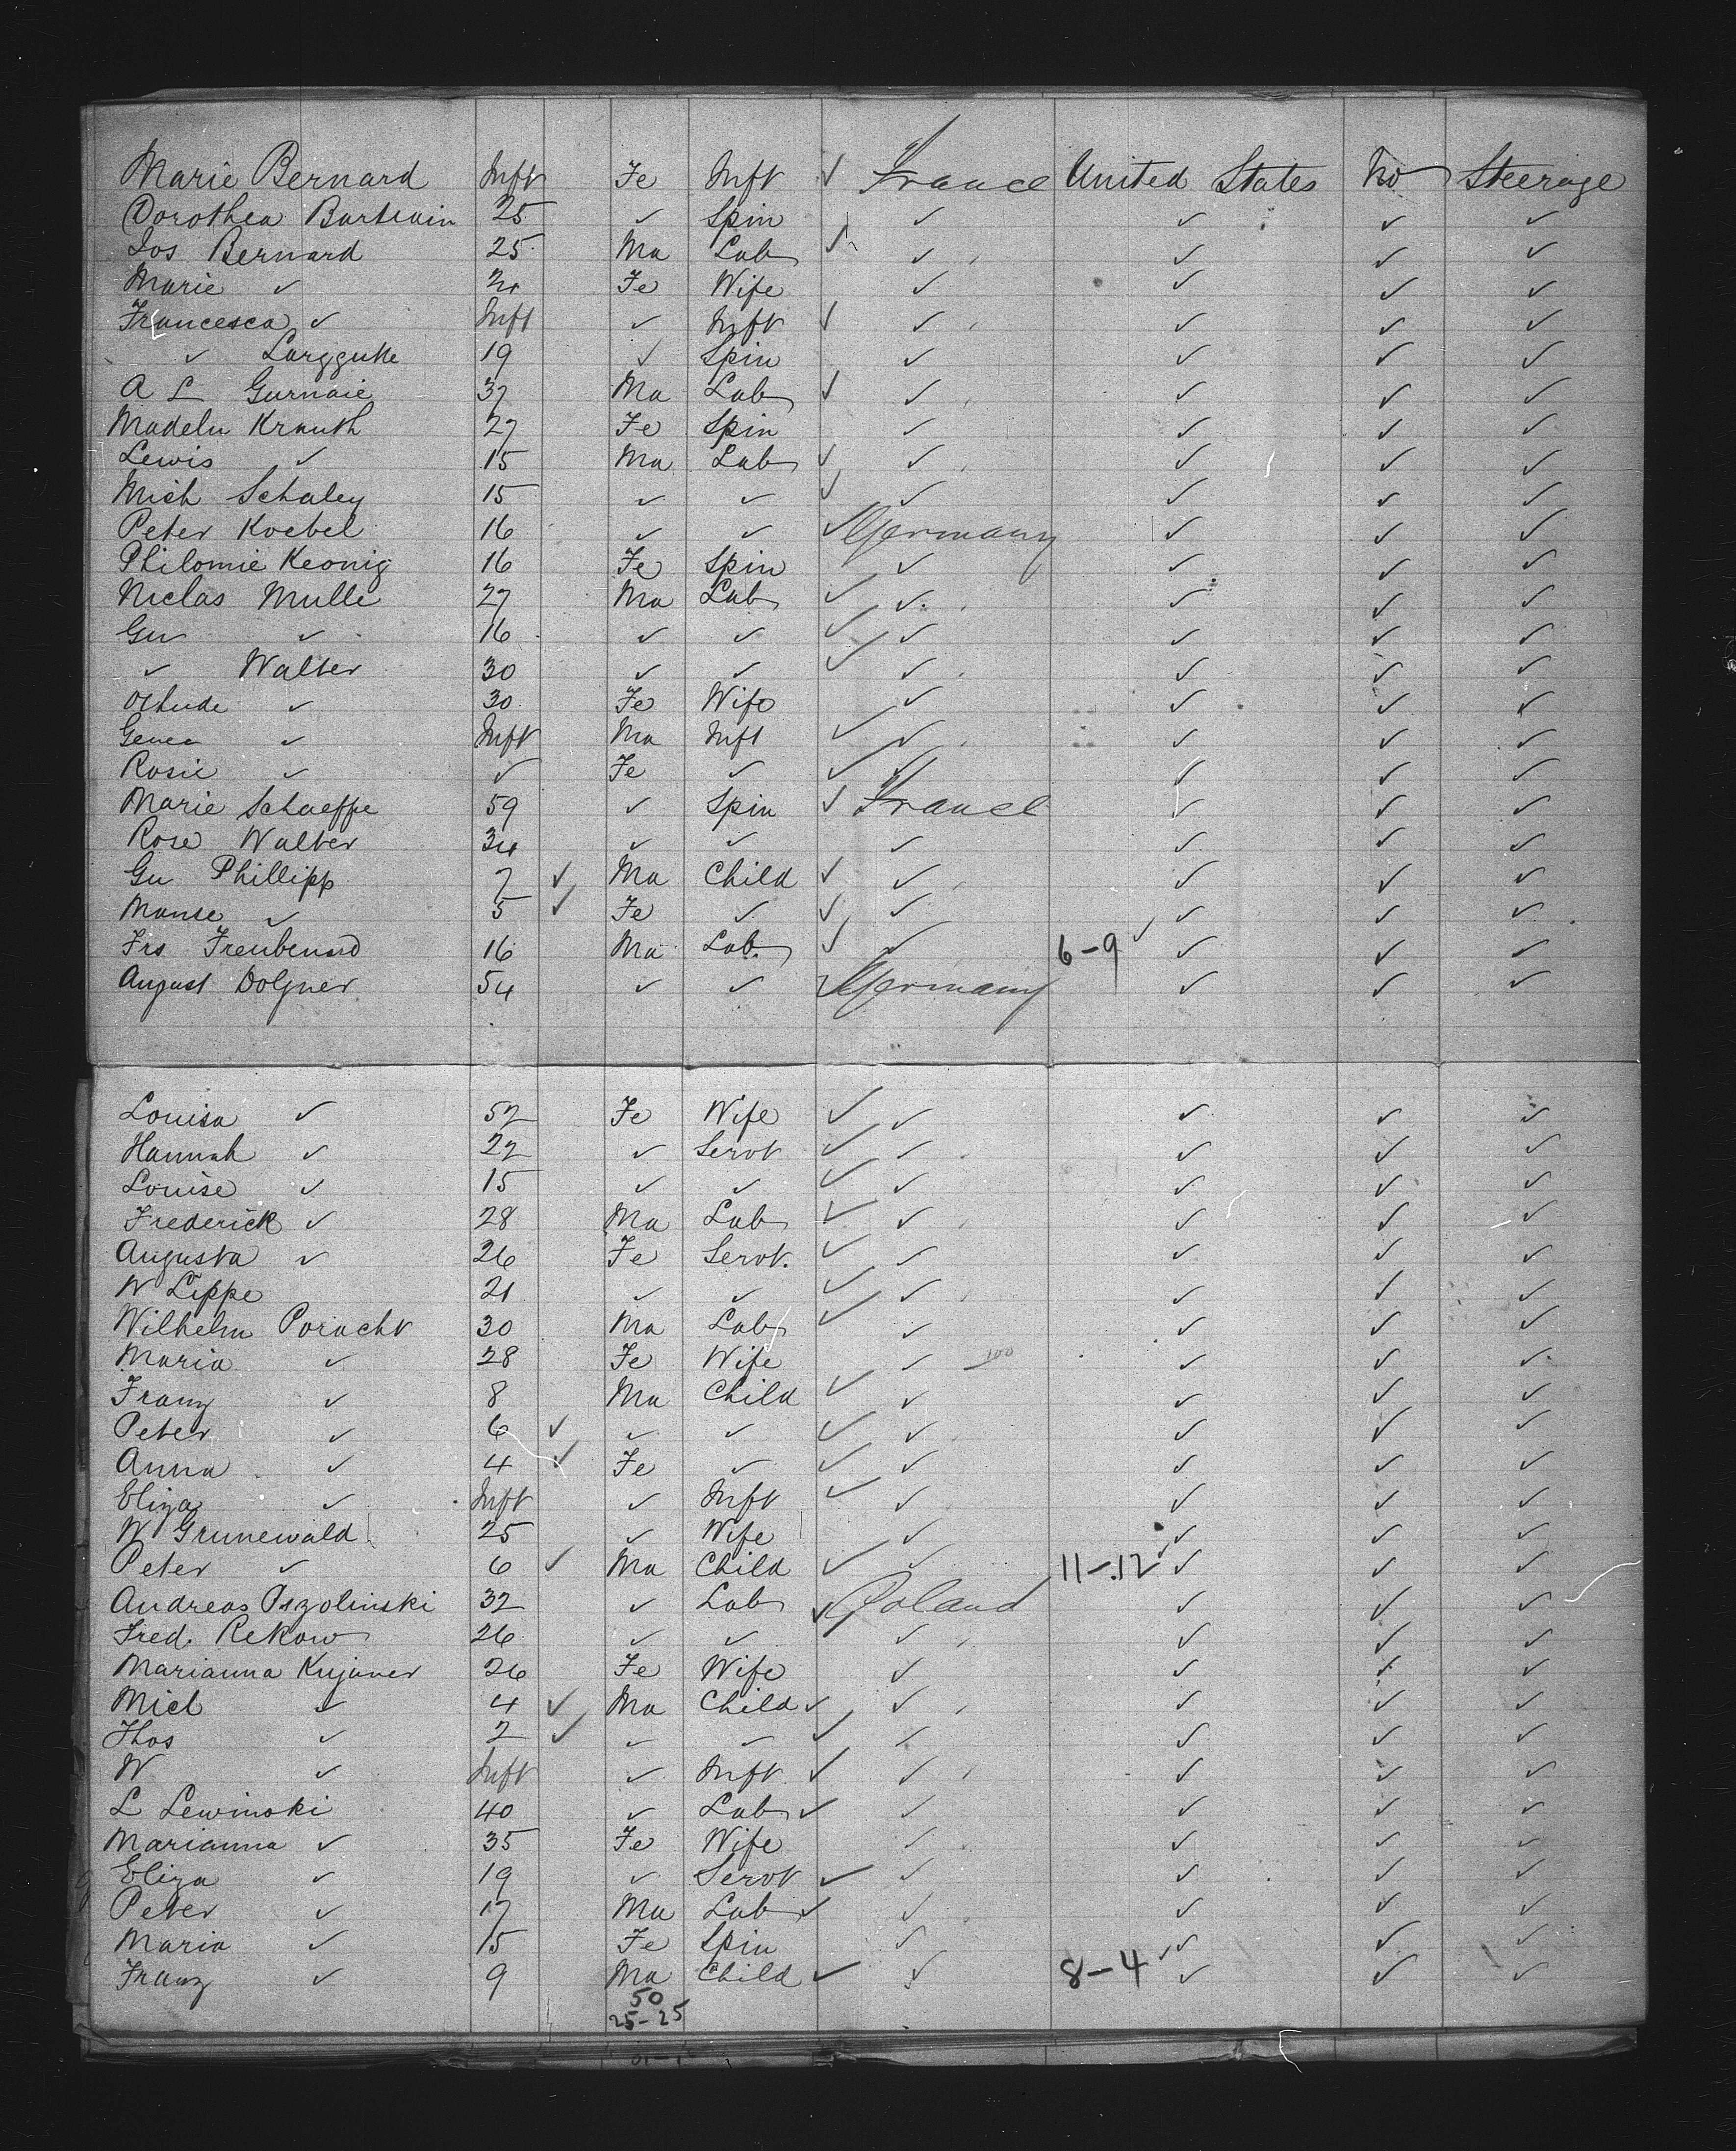 Marie Bernard Inft Fe Inft ✓ France United States No Steerage
Dorothea 25 ✓ Spin ✓ ✓ ✓ ✓
Jos Bernard 25 Ma Lab ✓ ✓ ✓ ✓ ✓
Marie ✓ Fe Wife ✓ ✓ ✓ ✓
Francesca ✓ Inft ✓ Inft ✓ ✓ ✓ ✓ ✓
✓ 19 ✓ Spin ✓ ✓ ✓ ✓
A L Gurnaie 37 Ma Lab ✓ ✓ ✓ ✓ ✓
Madeln Krauth 27 Fe Spin ✓ ✓ ✓ ✓
Lewis ✓ 15 Ma Lab ✓ ✓ ✓ ✓ ✓
Mich Schaley 15 ✓ ✓ ✓ ✓ ✓ ✓ ✓
Peter Koebel 16 ✓ ✓ ✓ Germany ✓ ✓ ✓
Philomie Keonig 16 Fe Spin ✓ ✓ ✓ ✓
Niclas Mulle 27 Ma Lab ✓ ✓ ✓ ✓ ✓
Gu ✓ 16 ✓ ✓ ✓ ✓ ✓ ✓ ✓
✓ Walter 30 ✓ ✓ ✓ ✓ ✓ ✓ ✓
✓ 30 Fe Wife ✓ ✓ ✓ ✓
✓ Inft Ma Inft ✓ ✓ ✓ ✓ ✓
Rosie ✓ ✓ Fe ✓ ✓ ✓ ✓ ✓ ✓
Marie Schaeffe 59 ✓ Spin ✓ France ✓ ✓ ✓
Rose Walter 34 ✓ ✓ ✓ ✓ ✓ ✓
Gu Phillipp 7 ✓ Ma Child ✓ ✓ ✓ ✓ ✓
Manse ✓ 5 ✓ Fe ✓ ✓ ✓ ✓ ✓ ✓
Frs 16 Ma Lab. ✓ ✓ 6-9 ✓ ✓ ✓ ✓
August Dolgner 54 ✓ ✓ ✓ Germany ✓ ✓ ✓
Louisa ✓ 52 Fe Wife ✓ ✓ ✓ ✓ ✓
Hannah ✓ 22 ✓ Servt ✓ ✓ ✓ ✓ ✓
Louise ✓ 15 ✓ ✓ ✓ ✓ ✓ ✓ ✓
Frederick ✓ 28 Ma Lab ✓ ✓ ✓ ✓ ✓
Augusta ✓ 26 Fe Servt. ✓ ✓ ✓ ✓ ✓
W Lippe 21 ✓ ✓ ✓ ✓ ✓ ✓ ✓
Wilhelm Poracht 30 Ma Lab ✓ ✓ ✓ ✓ ✓
Maria ✓ 28 Fe Wife ✓ 100 ✓ ✓ ✓
Franz ✓ 8 Ma Child ✓ ✓ ✓ ✓ ✓
Peter ✓ 6 ✓ ✓ ✓ ✓ ✓ ✓ ✓ ✓
Anna ✓ 4 ✓ Fe ✓ ✓ ✓ ✓ ✓ ✓
Eliza ✓ Inft ✓ Inft ✓ ✓ ✓ ✓ ✓
W Grunewald 25 ✓ Wife ✓ ✓ ✓ ✓
Peter ✓ 6 ✓ Ma Child ✓ ✓ 11-12 ✓ ✓ ✓ ✓
Andreas Pszolinski 32 ✓ Lab ✓ Poland ✓ ✓ ✓
Fred. Rekow 26 ✓ ✓ ✓ ✓ ✓ ✓
Marianna Kujaner 26 Fe Wife ✓ ✓ ✓ ✓
Micl ✓ 4 ✓ Ma Child ✓ ✓ ✓ ✓ ✓
Thos ✓ 2 ✓ ✓ ✓ ✓ ✓ ✓ ✓ ✓
W ✓ Inft ✓ Inft ✓ ✓ ✓ ✓ ✓
L Lewinski 40 ✓ Lab ✓ ✓ ✓ ✓ ✓
Marianna ✓ 35 Fe Wife ✓ ✓ ✓ ✓
Eliza ✓ 19 ✓ Servt ✓ ✓ ✓ ✓ ✓
Peter ✓ 17 Ma Lab ✓ ✓ ✓ ✓ ✓
Maria ✓ 15 Fe Spin ✓ ✓ ✓ ✓
Franz ✓ 9 Ma Child ✓ ✓ 8-4 ✓ ✓ ✓ ✓
50
25-25